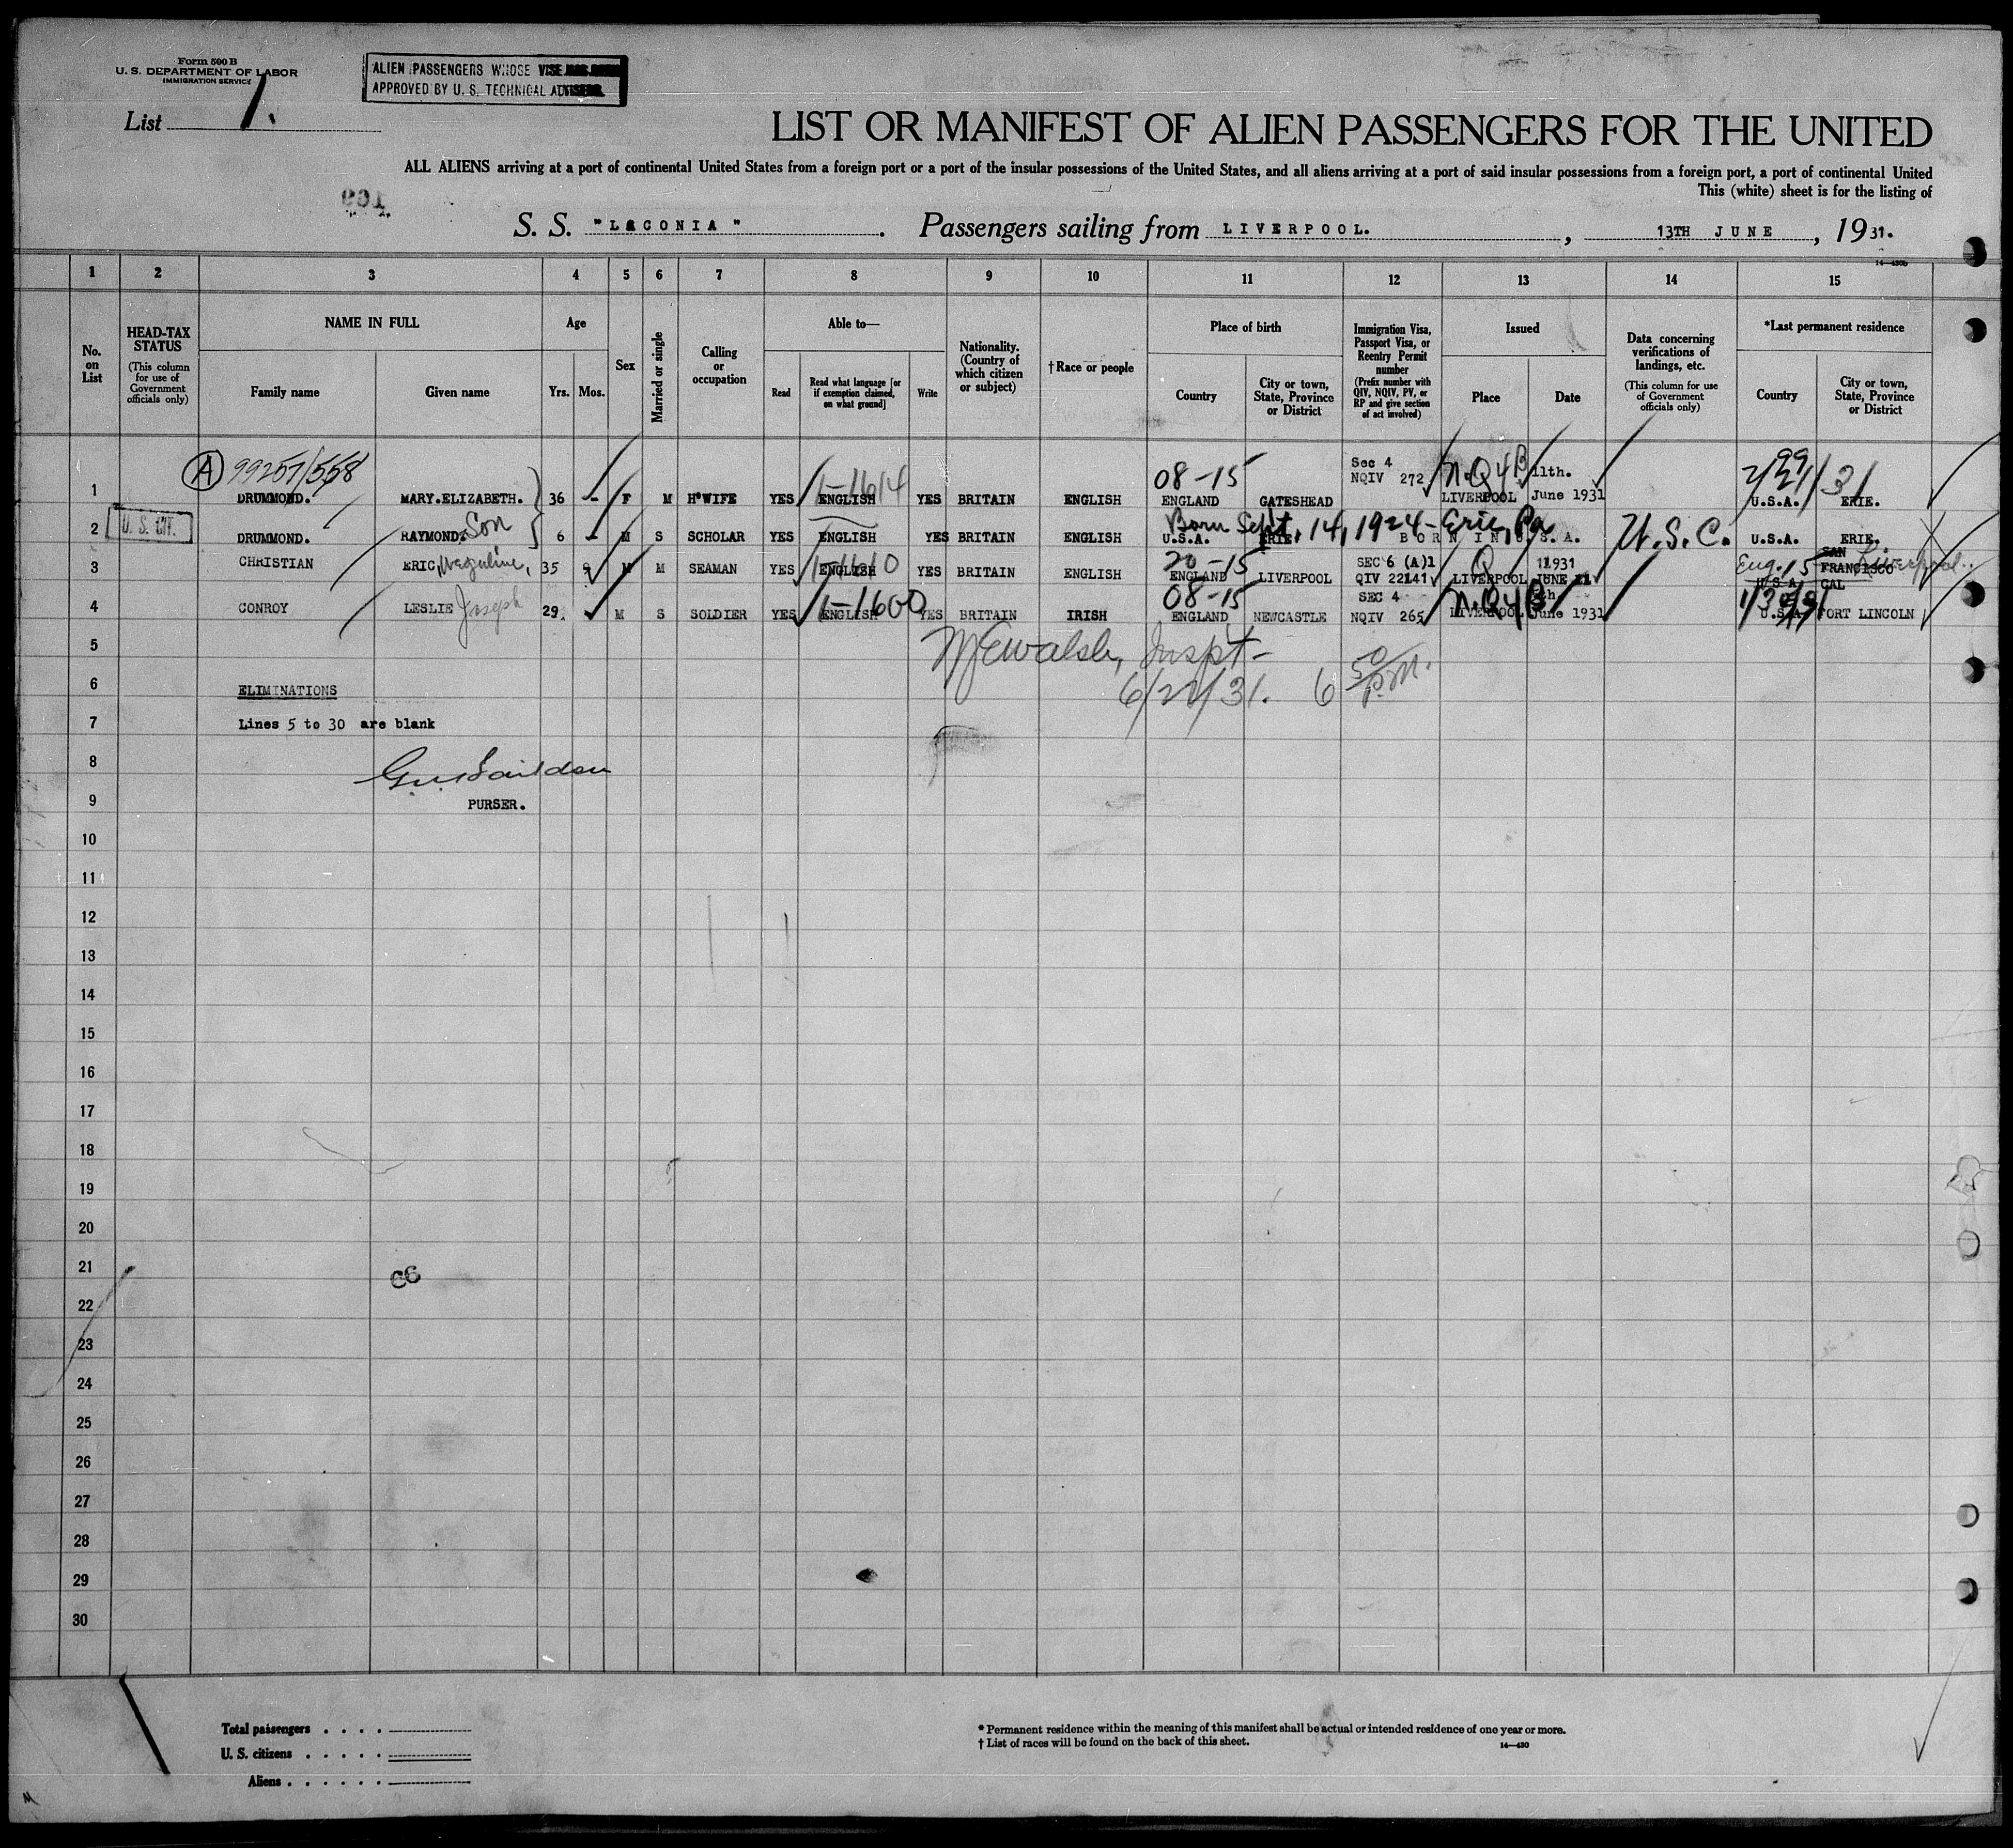 Form 500 B
U. S. DEPARTMENT OF LABOR
IMMIGRATION SERVICE
ALIEN PASSENGERS WHOSE VISE HAS BEEN
APPROVED BY U. S. TECHNICAL ADVISERS.
List 1.
LIST OR MANIFEST OF ALIEN PASSENGERS FOR THE UNITED
ALL ALIENS arriving at a port of continental United States from a foreign port or a port of the insular possessions of the United States, and all aliens arriving at a port of said insular possessions from a foreign port, a port of continental United
This (white) sheet is for the listing of
169
S. S. "LACONIA". Passengers sailing from LIVERPOOL., 13TH JUNE, 1931.
14—430b
1 2 3 4 5 6 7 8 9 10 11 12 13 14 15
No. on List
HEAD-TAX STATUS (This column for use of Government officials only)
NAME IN FULL
Family name Given name
Age
Yrs. Mos.
Sex
Married or single
Calling or occupation
Able to—
Read Read what language [or if exemption claimed, on what ground] Write
Nationality. (Country of which citizen or subject)
† Race or people
Place of birth
Country City or town, State, Province or District
Immigration Visa, Passport Visa, or Reentry Permit number (Prefix number with QIV, NQIV, PV, or RP and give section of act involved)
Issued
Place Date
Data concerning verifications of landings, etc. (This column for use of Government officials only)
*Last permanent residence
Country City or town, State, Province or District
A 99257/558 1-1614 08-15 Sec 4 N.Q4B 11th. 99 2/21/31
1 DRUMMOND. MARY.ELIZABETH. 36 - F M H'WIFE YES ENGLISH YES BRITAIN ENGLISH ENGLAND GATESHEAD NQIV 272 LIVERPOOL June 1931 U.S.A. ERIE.
U. S. CIT. Son Born Sept. 14, 1924 - Erie, Pa. U.S.C.
2 DRUMMOND. RAYMOND. 6 - M S SCHOLAR YES ENGLISH YES BRITAIN ENGLISH U.S.A. ERIE. BORN IN U.S.A. U.S.A. ERIE.
3 CHRISTIAN ERIC, 35 M M SEAMAN YES ENGLISH 1-1610 YES BRITAIN ENGLISH 20-15 ENGLAND LIVERPOOL SEC 6 (A)1 QIV 22141 Q LIVERPOOL 11931 JUNE 11 Eng. 15 U.S.A. SAN FRANCISCO CAL Liverpool.
4 CONROY LESLIE Joseph 29. M S SOLDIER YES ENGLISH 1-1600 YES BRITAIN IRISH 08-15 ENGLAND NEWCASTLE SEC 4 NQIV 265 N.Q4B LIVERPOOL June 1931 U.S.A. FORT LINCOLN
5 Walsh, Inspt-
6 ELIMINATIONS 6/21/31. 6 50 P.M.
7 Lines 5 to 30 are blank
8
9 PURSER.
10
11
12
13
14
15
16
17
18
19
20
21 66
22
23
24
25
26
27
28
29
30
Total passengers . . . .
U. S. citizens . . . . .
Aliens . . . . . .
* Permanent residence within the meaning of this manifest shall be actual or intended residence of one year or more.
† List of races will be found on the back of this sheet.
14—430